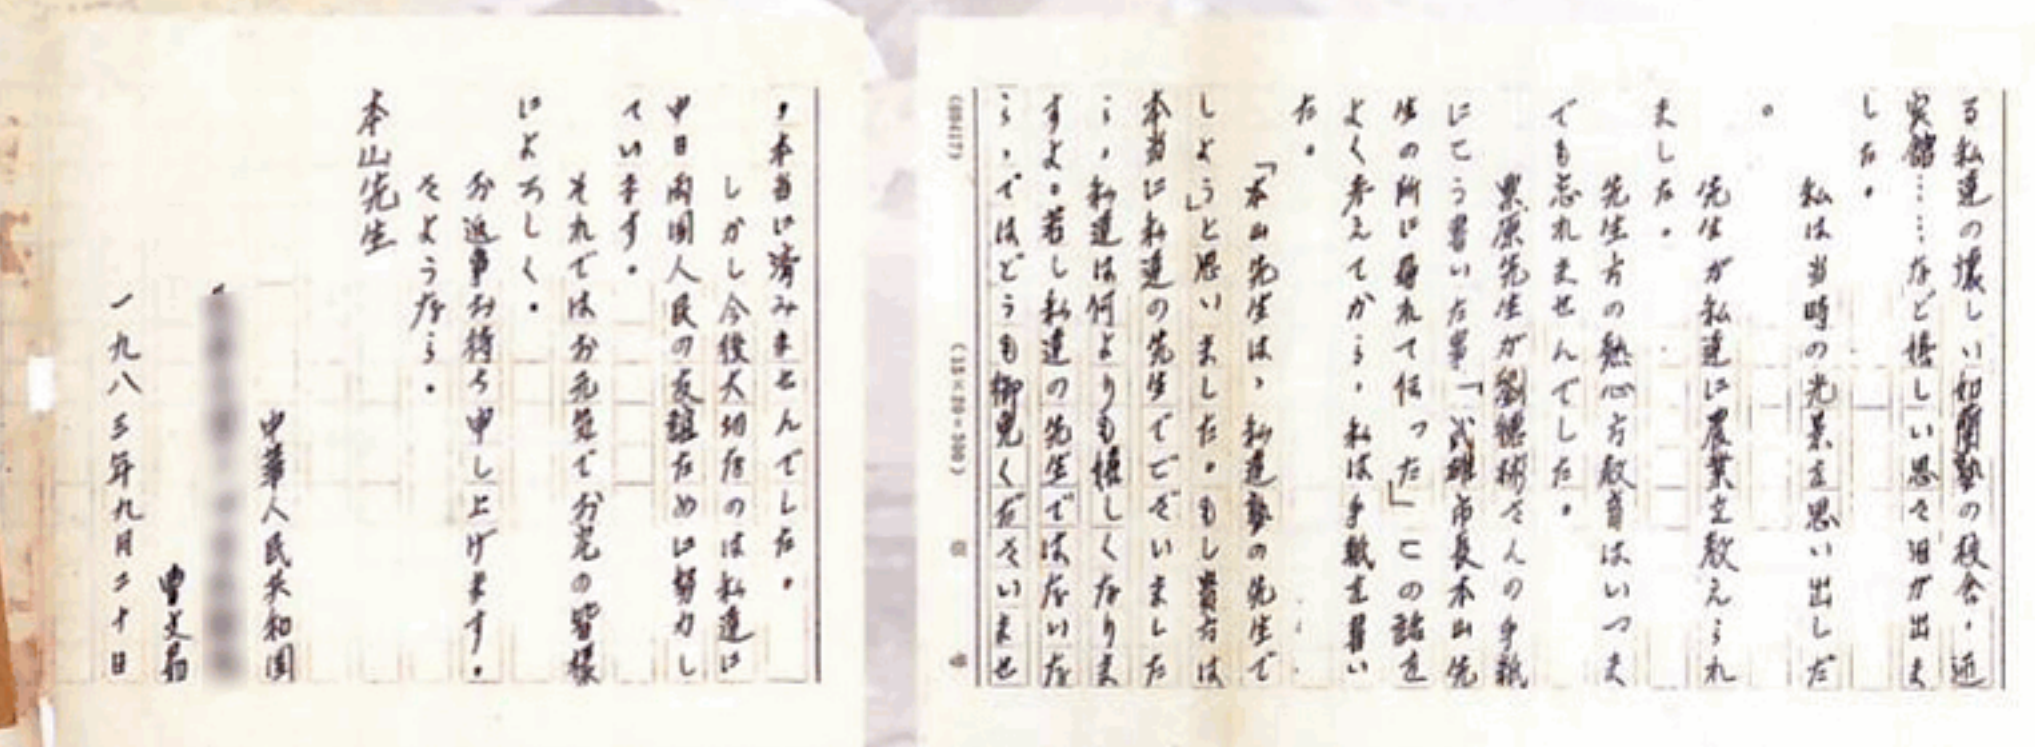 る私達の懐しい如蘭塾の校舎・迎
実館……など懐しい思々泪が出ま
した。
私は当時の光景を思い出しだ
。
先生が私達に農業を教えられ
ました。
先生方の熱心方教育はいつま
でも忘れませんでした。
栗原先生が劉徳彬さんの手紙
にこう書いた事「武雄市長本山先
生の所に尋れて伝った」この話を
よく考えてから，私は手紙を書い
た。
「本山先生は，私達塾の先生で
しょう」と思いました。もし貴方は
本当に私達の先生でございました
ら，私達は何よりも懐しくなりま
すよ。若し私達の先生ではないな
ら，ではどうも御免くださいませ
，本当に済みませんでした。
しかし今後大切なのは私達は
中日両国人民の友誼ために努力し
ています。
それではお元気でお宅の皆様
によろしく。
お返事お待ち申し上げます。
さようなら。
本山先生
中華人民共和国
曹文易
一九八三年九月二十日
(GB417)
(15×20=300)